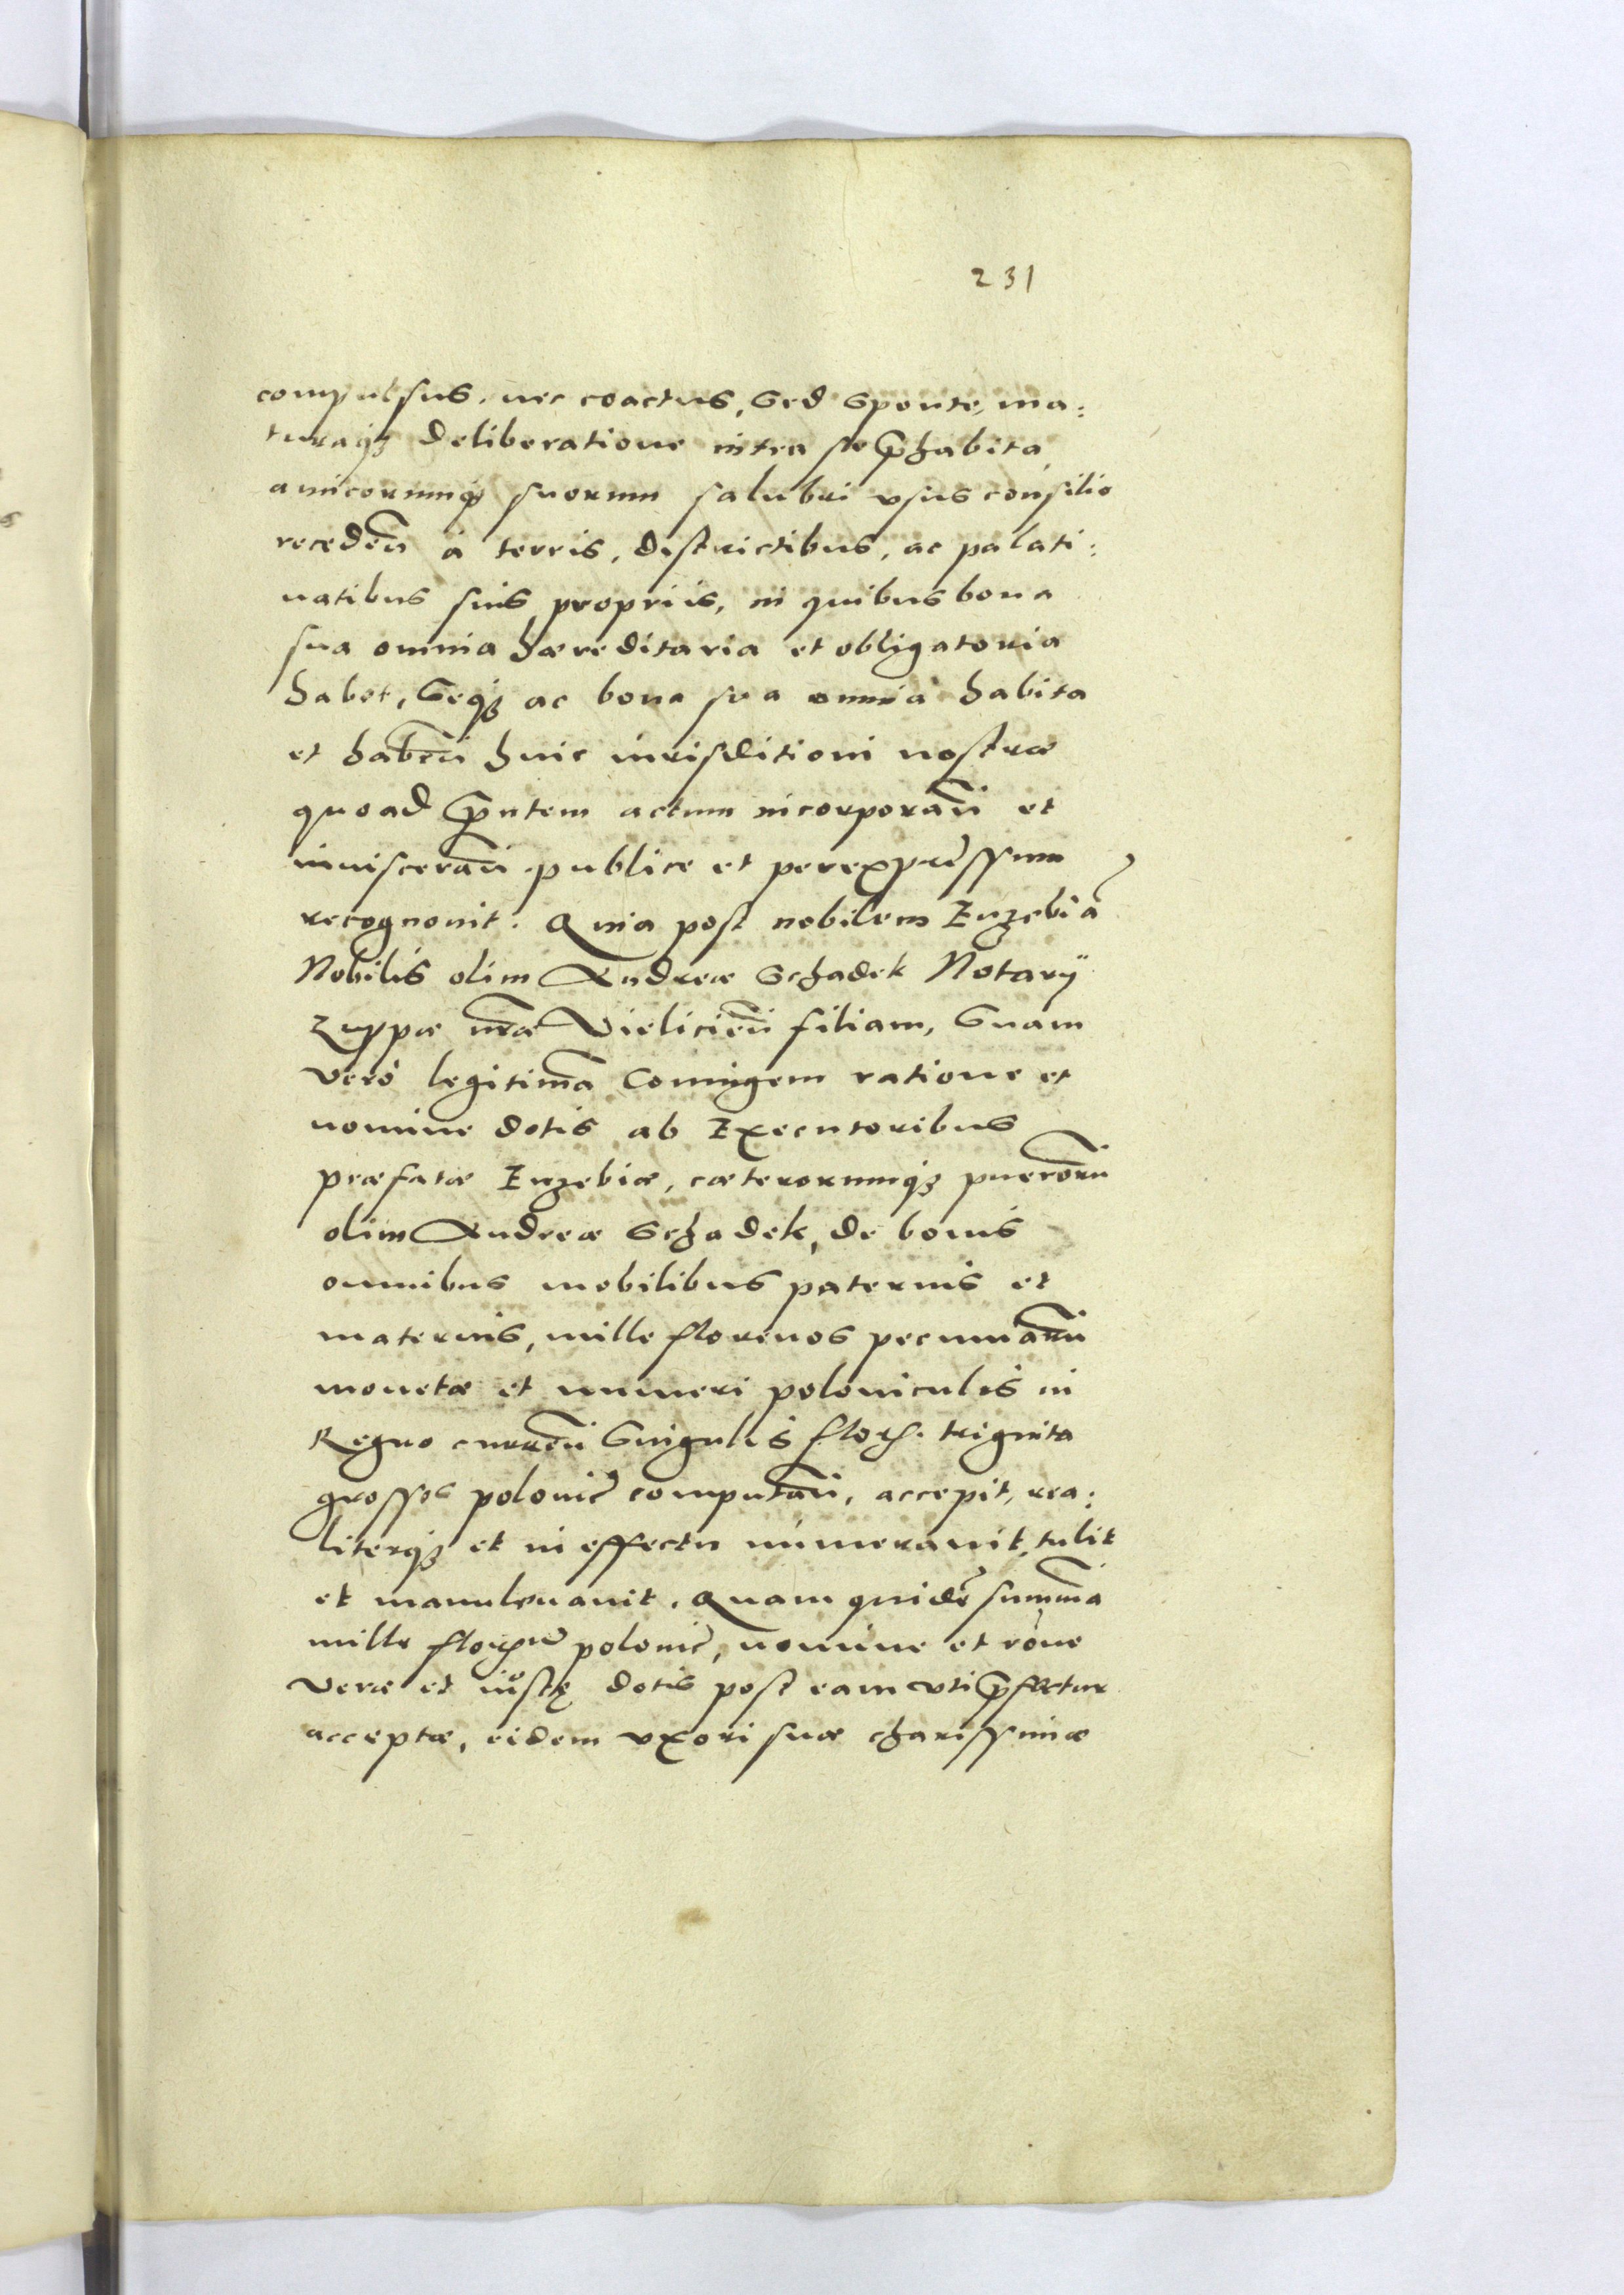 231
compulsus, nec coactus, Sed Sponte, ma:
turaqȝ Deliberatione intra se p̃habita
amicorumqȝ suorum salubri vsus consilio
recedeñ à terris, districtibus, ac palati:
natibus suis propriis, in quibus bona
sua omnia hæreditaria et obligatoria
habet, Seqȝ ac bona sua omnia habita
et habeñ huic iurisditioni nostræ
quoad p̃ntem actum incorporañ et
inuiscerañ publice et per expressum
recognouit. Quia post nobilem Euzebiã
Nobilis olim Andreæ Schadek Notarÿ
Zuppæ nr̃æ Vielicieñ filiam, Suam
verò legitimã Coniugem ratione et
nomine dotis ab Executoribus
præfatæ Euzebiæ, cæterorumqȝ puerorũ
olim Andreæ Schadek, de bonis
omnibus mobilibus paternis et
maternis, mille florenos pecuniarũ
monetæ et numeri poloniculis in
Regno curreñ Singulis flor. triginta
grossos poloniĉ computañ, accepit, rea:
literqȝ et in effectu numerauit, tulit
et manuleuauit. Quam quidẽ summã
mille floreñ poloniĉ, nomine et rõne
veræ et iustę dotis post eam vti p̃fertur
acceptæ, eidem vxori suæ charissimæ